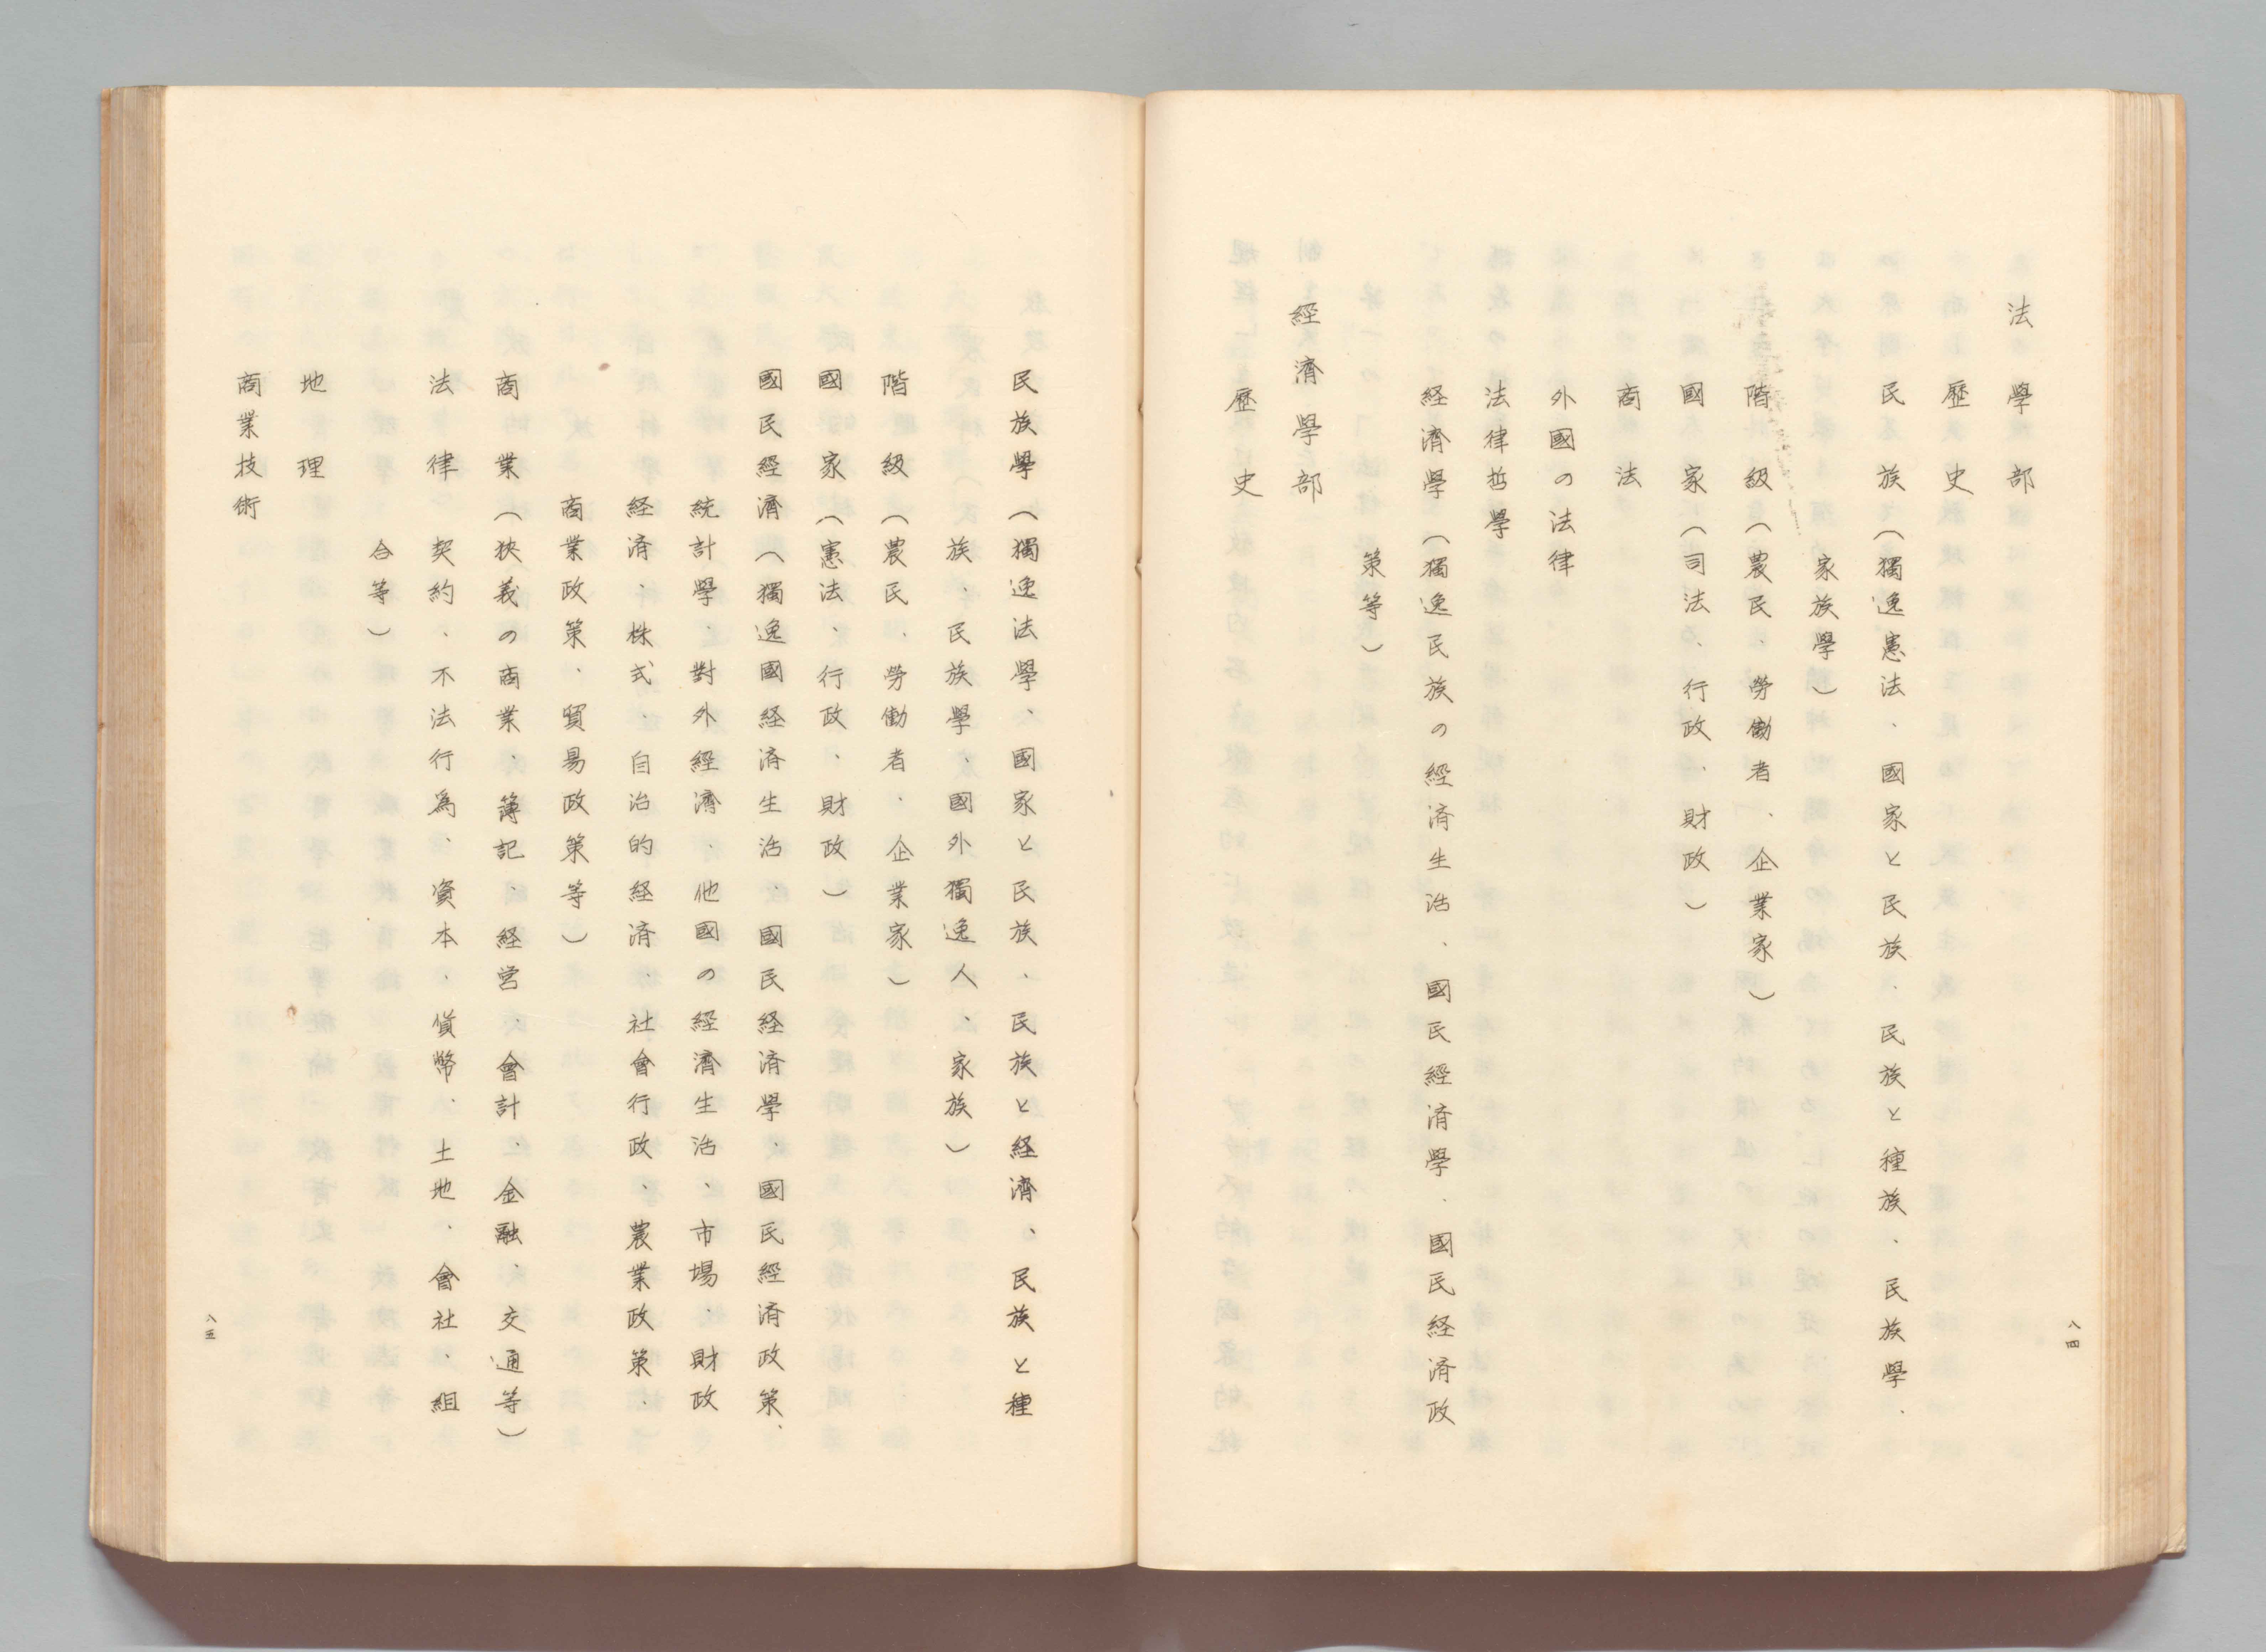 法學部
歷史
民族（獨逸憲法、國家と民族、民族と種族、民族學、
家族學）
階級（農民、勞働者、企業家）
國家（司法、行政、財政）
商法
外國の法律
法律哲學
経濟學（獨逸民族の經済生活、國民經済學、國民経済政
策等）
經濟學部
歷史
八四
民族學（獨逸法學、國家と民族、民族と経濟、民族と種
族、民族學、國外獨逸人、家族）
階級（農民、勞働者、企業家）
國家（憲法、行政、財政）
國民經濟（獨逸國経済生活、國民経済學、國民經済政策、
統計學、對外經濟、他國の經濟生活、市場、財政
経済、株式、自治的経済、社會行政、農業政策、
商業政策、貿易政策等）
商業（狹義の商業、簿記、経営會計、金融、交通等）
法律契約、不法行爲、資本、貨幣、土地、會社、組
合等）
地理
商業技術
八五